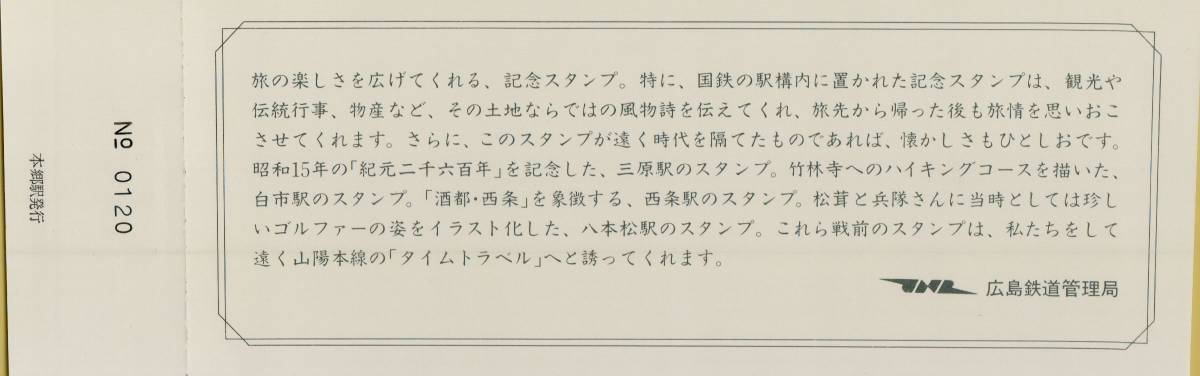 旅の楽しさを広げてくれる、記念スタンプ。特に、国鉄の駅構内に置かれた記念スタンプは、観光や
伝統行事、物産など、その土地ならではの風物詩を伝えてくれ、旅先から帰った後も旅情を思いおこ
させてくれます。さらに、このスタンプが遠く時代を隔てたものであれば、懐かしさもひとしおです。
昭和15年の「紀元二千六百年」を記念した、三原駅のスタンプ。竹林寺へのハイキングコースを描いた、
白市駅のスタンプ。「酒都・西条」を象徴する、西条駅のスタンプ。松茸と兵隊さんに当時としては珍し
いゴルファーの姿をイラスト化した、八本松駅のスタンプ。これら戦前のスタンプは、私たちをして
遠く山陽本線の「タイムトラベル」へと誘ってくれます。
JNR 広島鉄道管理局
№ 0120
本郷駅発行